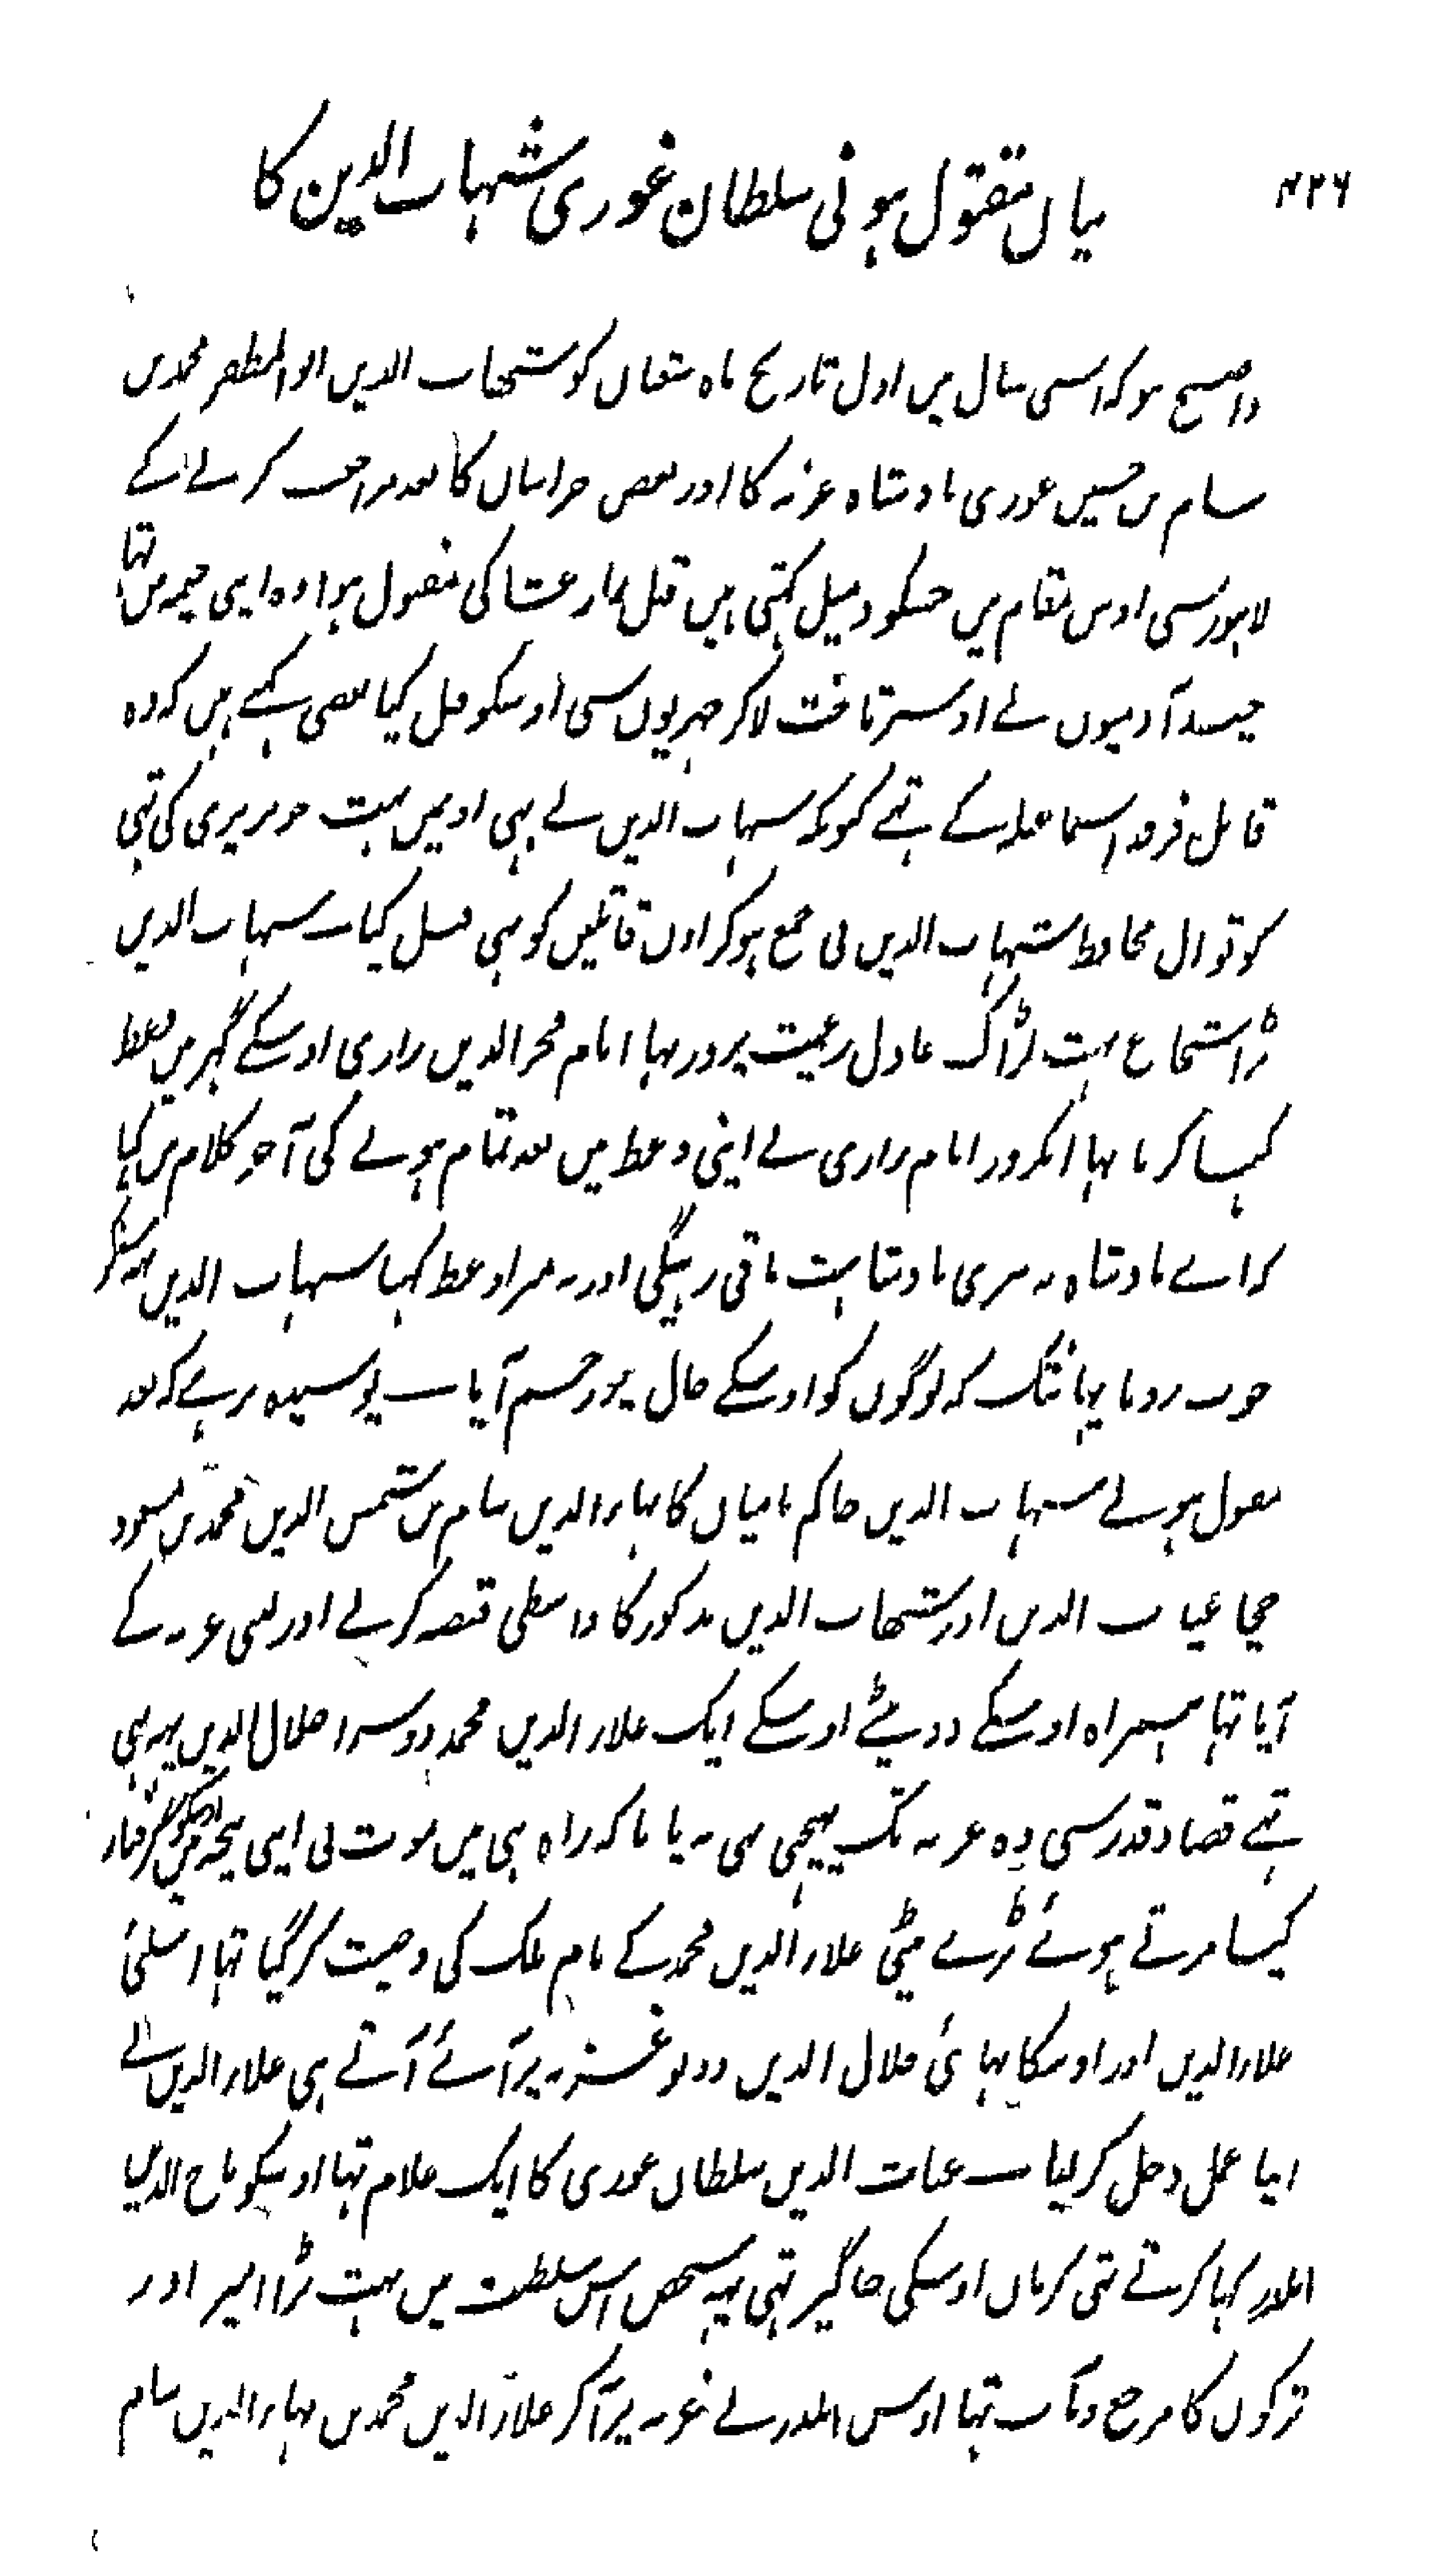 ۴۲۶
بیان مقتول ہونی سلطان غوری شہاب الدین کا
واضح ہو کہ اسی سال میں اول تاریخ ماہ شعبان کو شہاب الدین ابو المظفر محمد بن
سام بن حسین غوری بادشاہ غزنہ کا اور بعض خراسان کا بعد مراجعت کرنے کے
لاہور سی اوس مقام میں جسکو دمیل کہتی ہیں قبل نماز عشا کی مقتول ہوا وہ اپنی خیمہ میں تہا
چند آدمیوں نے اوسپر تاخت لا کر چہریوں سی اوسکو قتل کیا بعضی کہتے ہیں کہ وہ
قاتل فرقہ اسماعیلیہ کے تہے کیونکہ شہاب الدین نے بہی اونمیں بہت خونریزی کی تہی
کوتوال محافظ شہاب الدین نی جمع ہو کر اون قاتلین کو بہی قتل کیا شہاب الدین
بڑا شجاع بہت لڑاک عادل رعیت پرور تہا امام فخر الدین رازی اوسکے گہر میں وعظ
کہا کرتا تہا ایکروز امام رازی نے اپنی وعظ میں بعد تمام ہونے کی آخر کلام میں کہا
کہ اے بادشاہ نہ تیری بادشاہت باقی رہیگی اور نہ میرا وعظ کہنا شہاب الدین یہہ سنکر
خوب رویا یہانتک کہ لوگوں کو اوسکے حال پر رحم آیا پوشیدہ نرہے کہ بعد
مقتول ہونے شہاب الدین حاکم بامیان کا بہاء الدین سام بن شمس الدین محمد بن مسعود
چچا غیاث الدین اور شہاب الدین مذکور کا واسطی قبضہ کرنے اور لینی غزنہ کے
آیا تہا ہمراہ اوسکے دو بیٹے اوسکے ایک علاء الدین محمد دوسرا جلال الدین یہہ بہی
تہے قضا و قدر سی وہ غزنہ تک پہنچی بہی نہ پایا تہا کہ راہ ہی میں موت نی اپنی پنجہ میں اوسکو گرفتار
کیا مرتے ہوئے بڑے بیٹی علاء الدین محمد کے نام ملک کی وصیت کر گیا تہا اسلئی
علاء الدین اور اوسکا بہائی جلال الدین دونو غزنہ پر آئے آتے ہی علاء الدین نے
اپنا عمل دخل کر لیا غیاث الدین سلطان غوری کا ایک غلام تہا اوسکو تاج الدین
ایلدز کہا کرتے تہی کرمان اوسکی جاگیر تہی یہہ شخص اس سلطنت میں بہت بڑا امیر اور
ترکوں کا مرجع و مآب تہا اوس ایلدز نے غزنہ پر آ کر علاء الدین محمد بن بہاء الدین سام